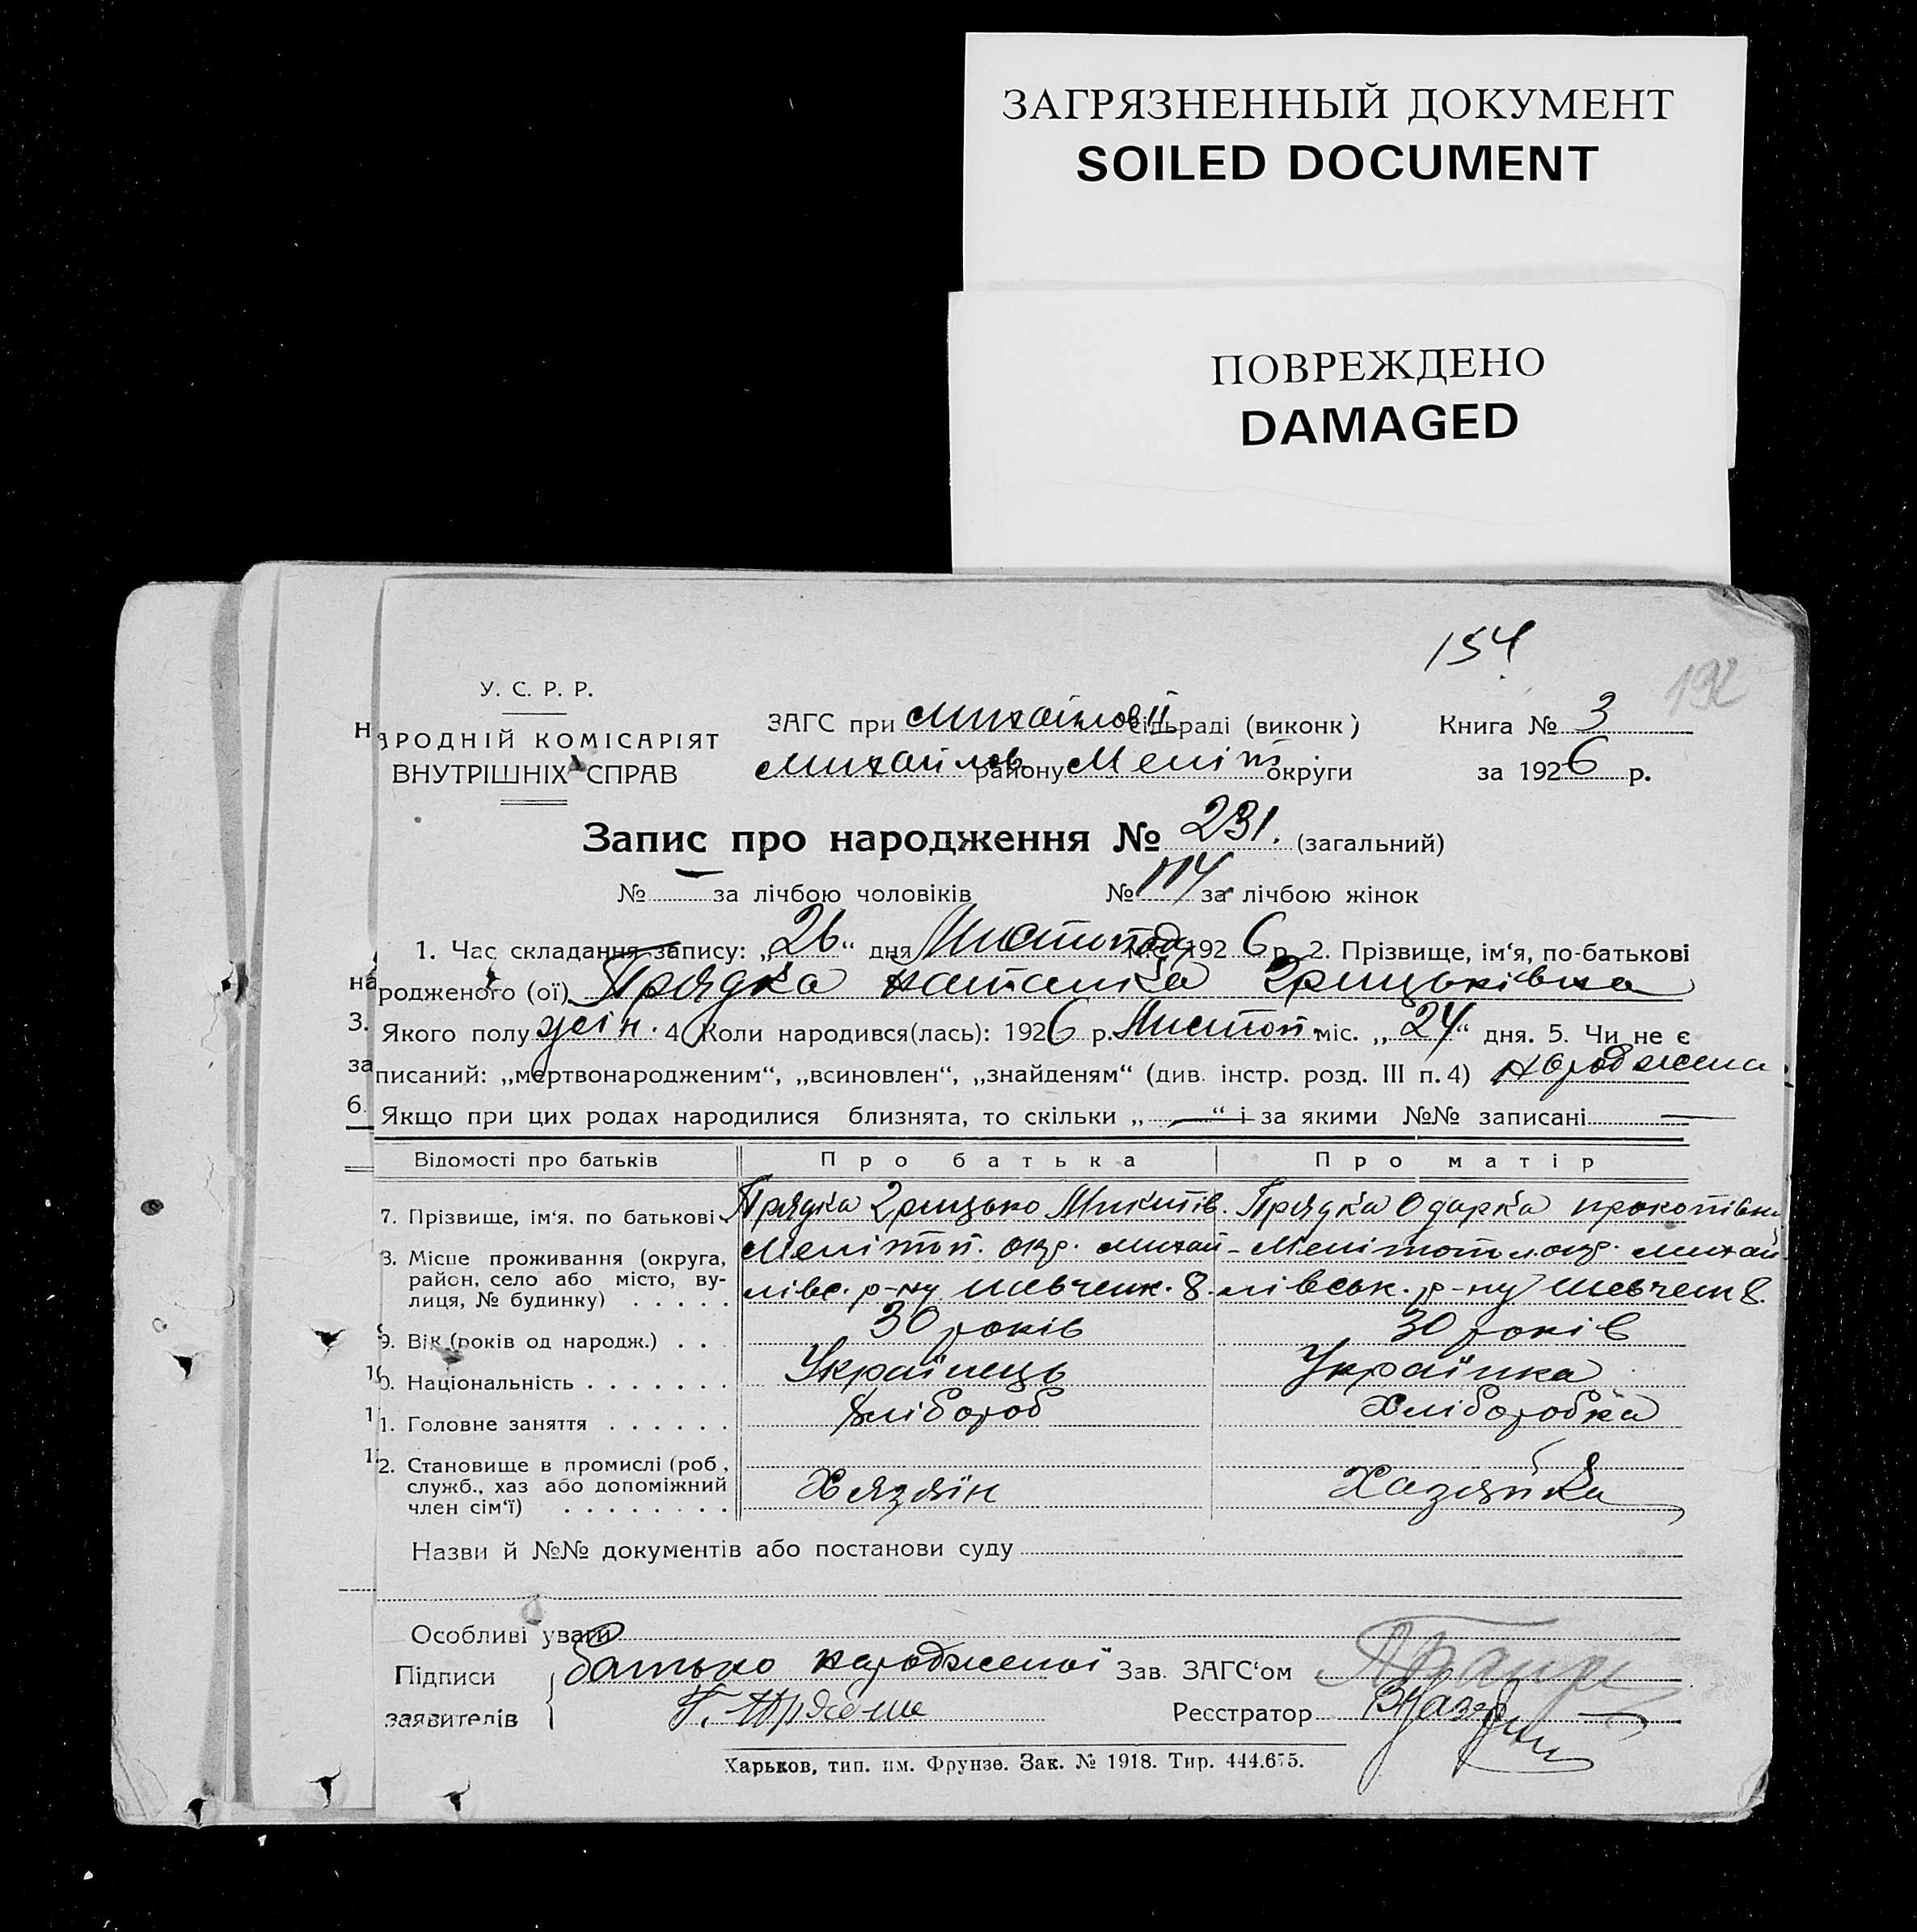 ЗАГРЯЗНЕННЫЙ ДОКУМЕНТ
SOILED DOCUMENT
ПОВРЕЖДЕНО
DAMAGED
154
192
У. С. Р. Р.
НАРОДНІЙ КОМІСАРІЯТ
ВНУТРІШНІХ СПРАВ
ЗАГС при Михайлов сільраді (виконк) Книга № 3
Михайлов району Меліт округи за 1926 р.
Запис про народження № 231. (загальний)
№ — за лічбою чоловіків № 114 за лічбою жінок
1. Час складання запису: „26“ дня Листопад 1926 р. 2. Прізвище, ім‘я, по-батькові
народженого (ої) Прядка Наталка Грицьківна
3. Якого полу жін. 4. Коли народився(лась): 1926 р. Листоп. міс. „24“ дня. 5. Чи не є
записаний: „мертвонародженим“, „всиновлен“, „знайденям“ (див. інстр. розд. III п. 4) народжена
6. Якщо при цих родах народилися близнята, то скільки „—“ і за якими №№ записані —
Відомості про батьків Про батька Про матір
7. Прізвище, ім‘я. по батькові Прядка Грицько Микитів. Прядка Одарка Прокопівна
8. Місце проживання (округа, район, село або місто, вулиця, № будинку)
Мелітоп. окр. Михайлівс. р-ну Шевченк. 8.
Мелітопол. окр. Михайлівськ. р-ну Шевченк 8.
9. Вік (років од народж.) . . 30 років 30 років
10. Національність . . . . . . . Українець Українка
11. Головне заняття . . . . . . Хлібороб Хліборобка
12. Становище в промислі (роб, служб., хаз або допоміжний член сім‘ї) . . . . . . . . Хазяїн Хазяйка
Назви й №№ документів або постанови суду
Особливі уваги
Підписи заявителів
батько народженої
Зав. ЗАГС‘ом
Г. Прядка
Реєстратор
Харьков, тип. им. Фрунзе. Зак. № 1918. Тир. 444.675.